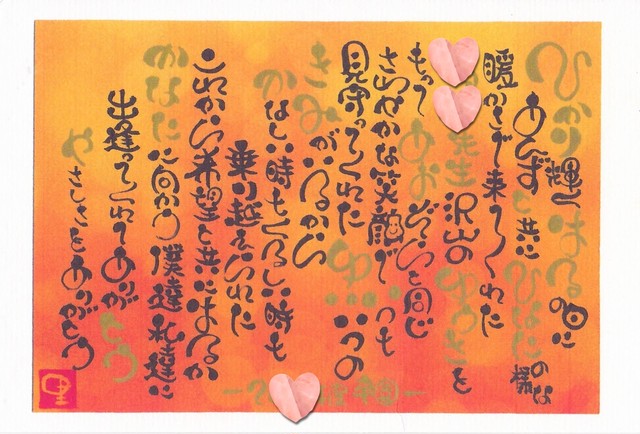 ひかり輝くはるの日に
あんずと共にひなたの様な
暖かさで来てくれた
先生 沢山のゆうきを
もって あおぞらと同じ
さわやかな笑顔でいつも
見守ってくれた ゆいいつの
きみがいるから
かなしい時もくるしい時も
乗り越えられた
これから希望と共にはるか
かなたに向かう僕達私達に
出逢ってくれてありがとう
やさしさをありがとう